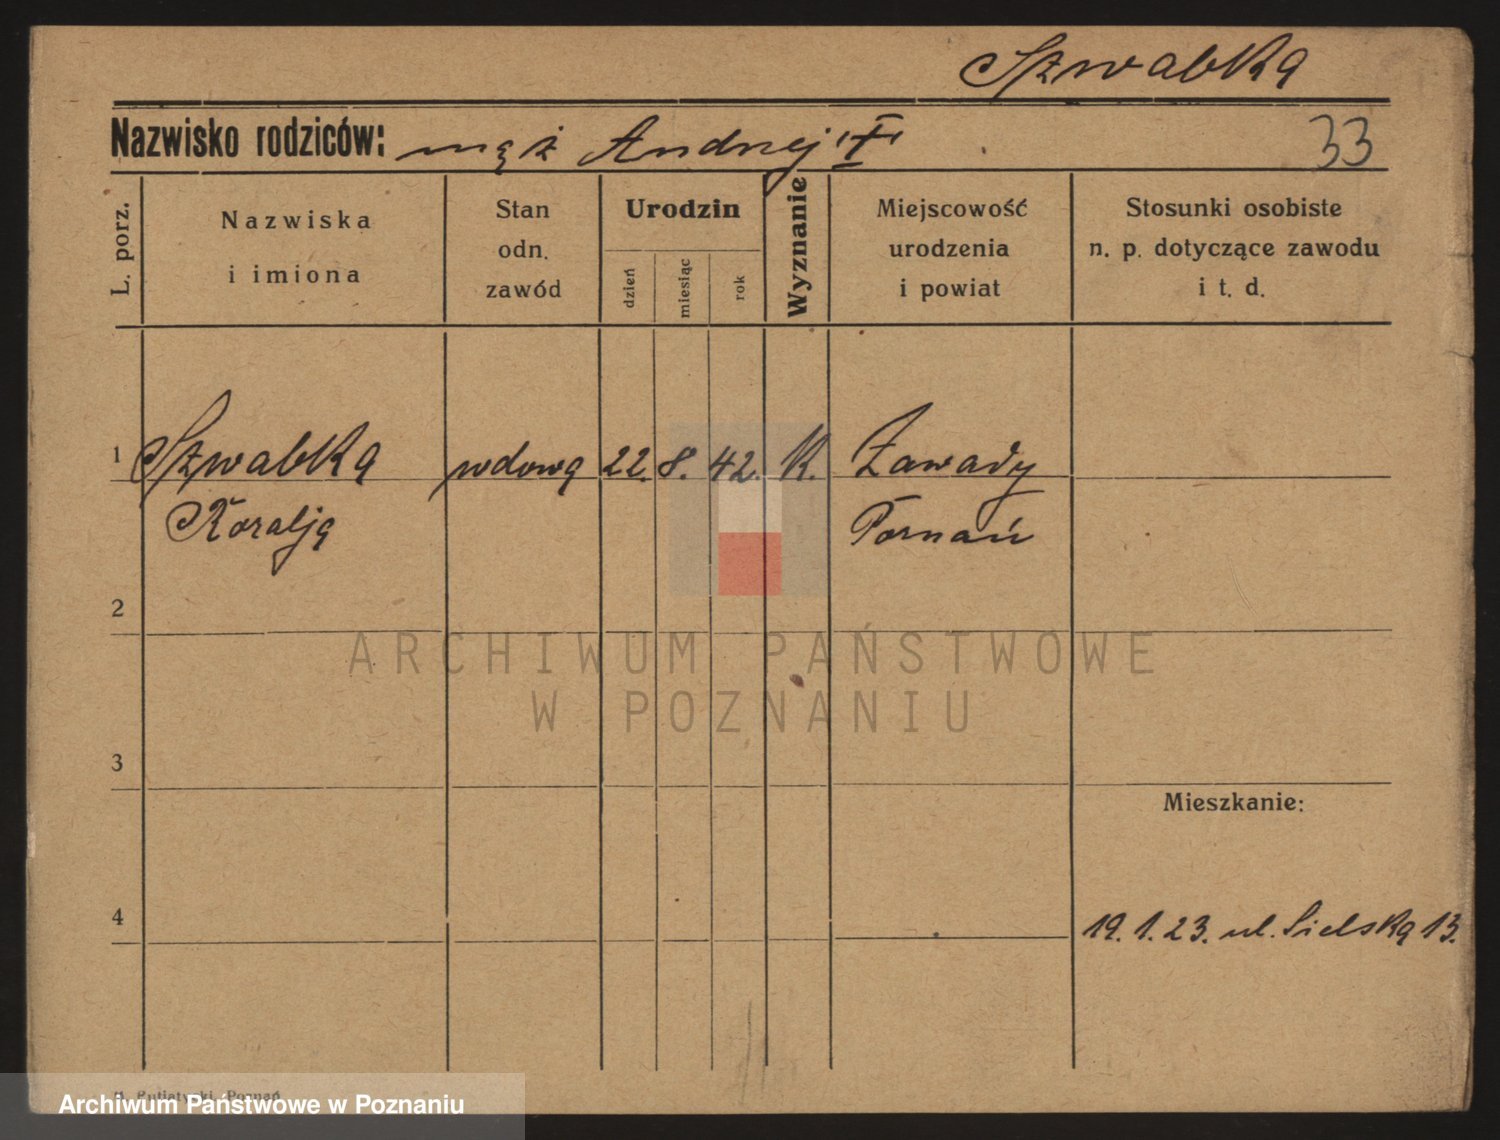 Szwabka
Nazwisko rodziców: mąż Andrzej "I"
33
L. porz.
Nazwiska
i imiona
Stan
odn.
zawód
Urodzin
dzień
miesiąc
rok
Wyznanie
Miejscowość
urodzenia
i powiat
Stosunki osobiste
n. p. dotyczące zawodu
i t. d.
1 Szwabka wdowa 22. 8. 42. K. Zawady
Koralja Poznań
2
ARCHIWUM PAŃSTWOWE
W POZNANIU
3
Mieszkanie:
4
19. 1. 23. ul. Sielska 13.
Putiatycki, Poznań
Archiwum Państwowe w Poznaniu